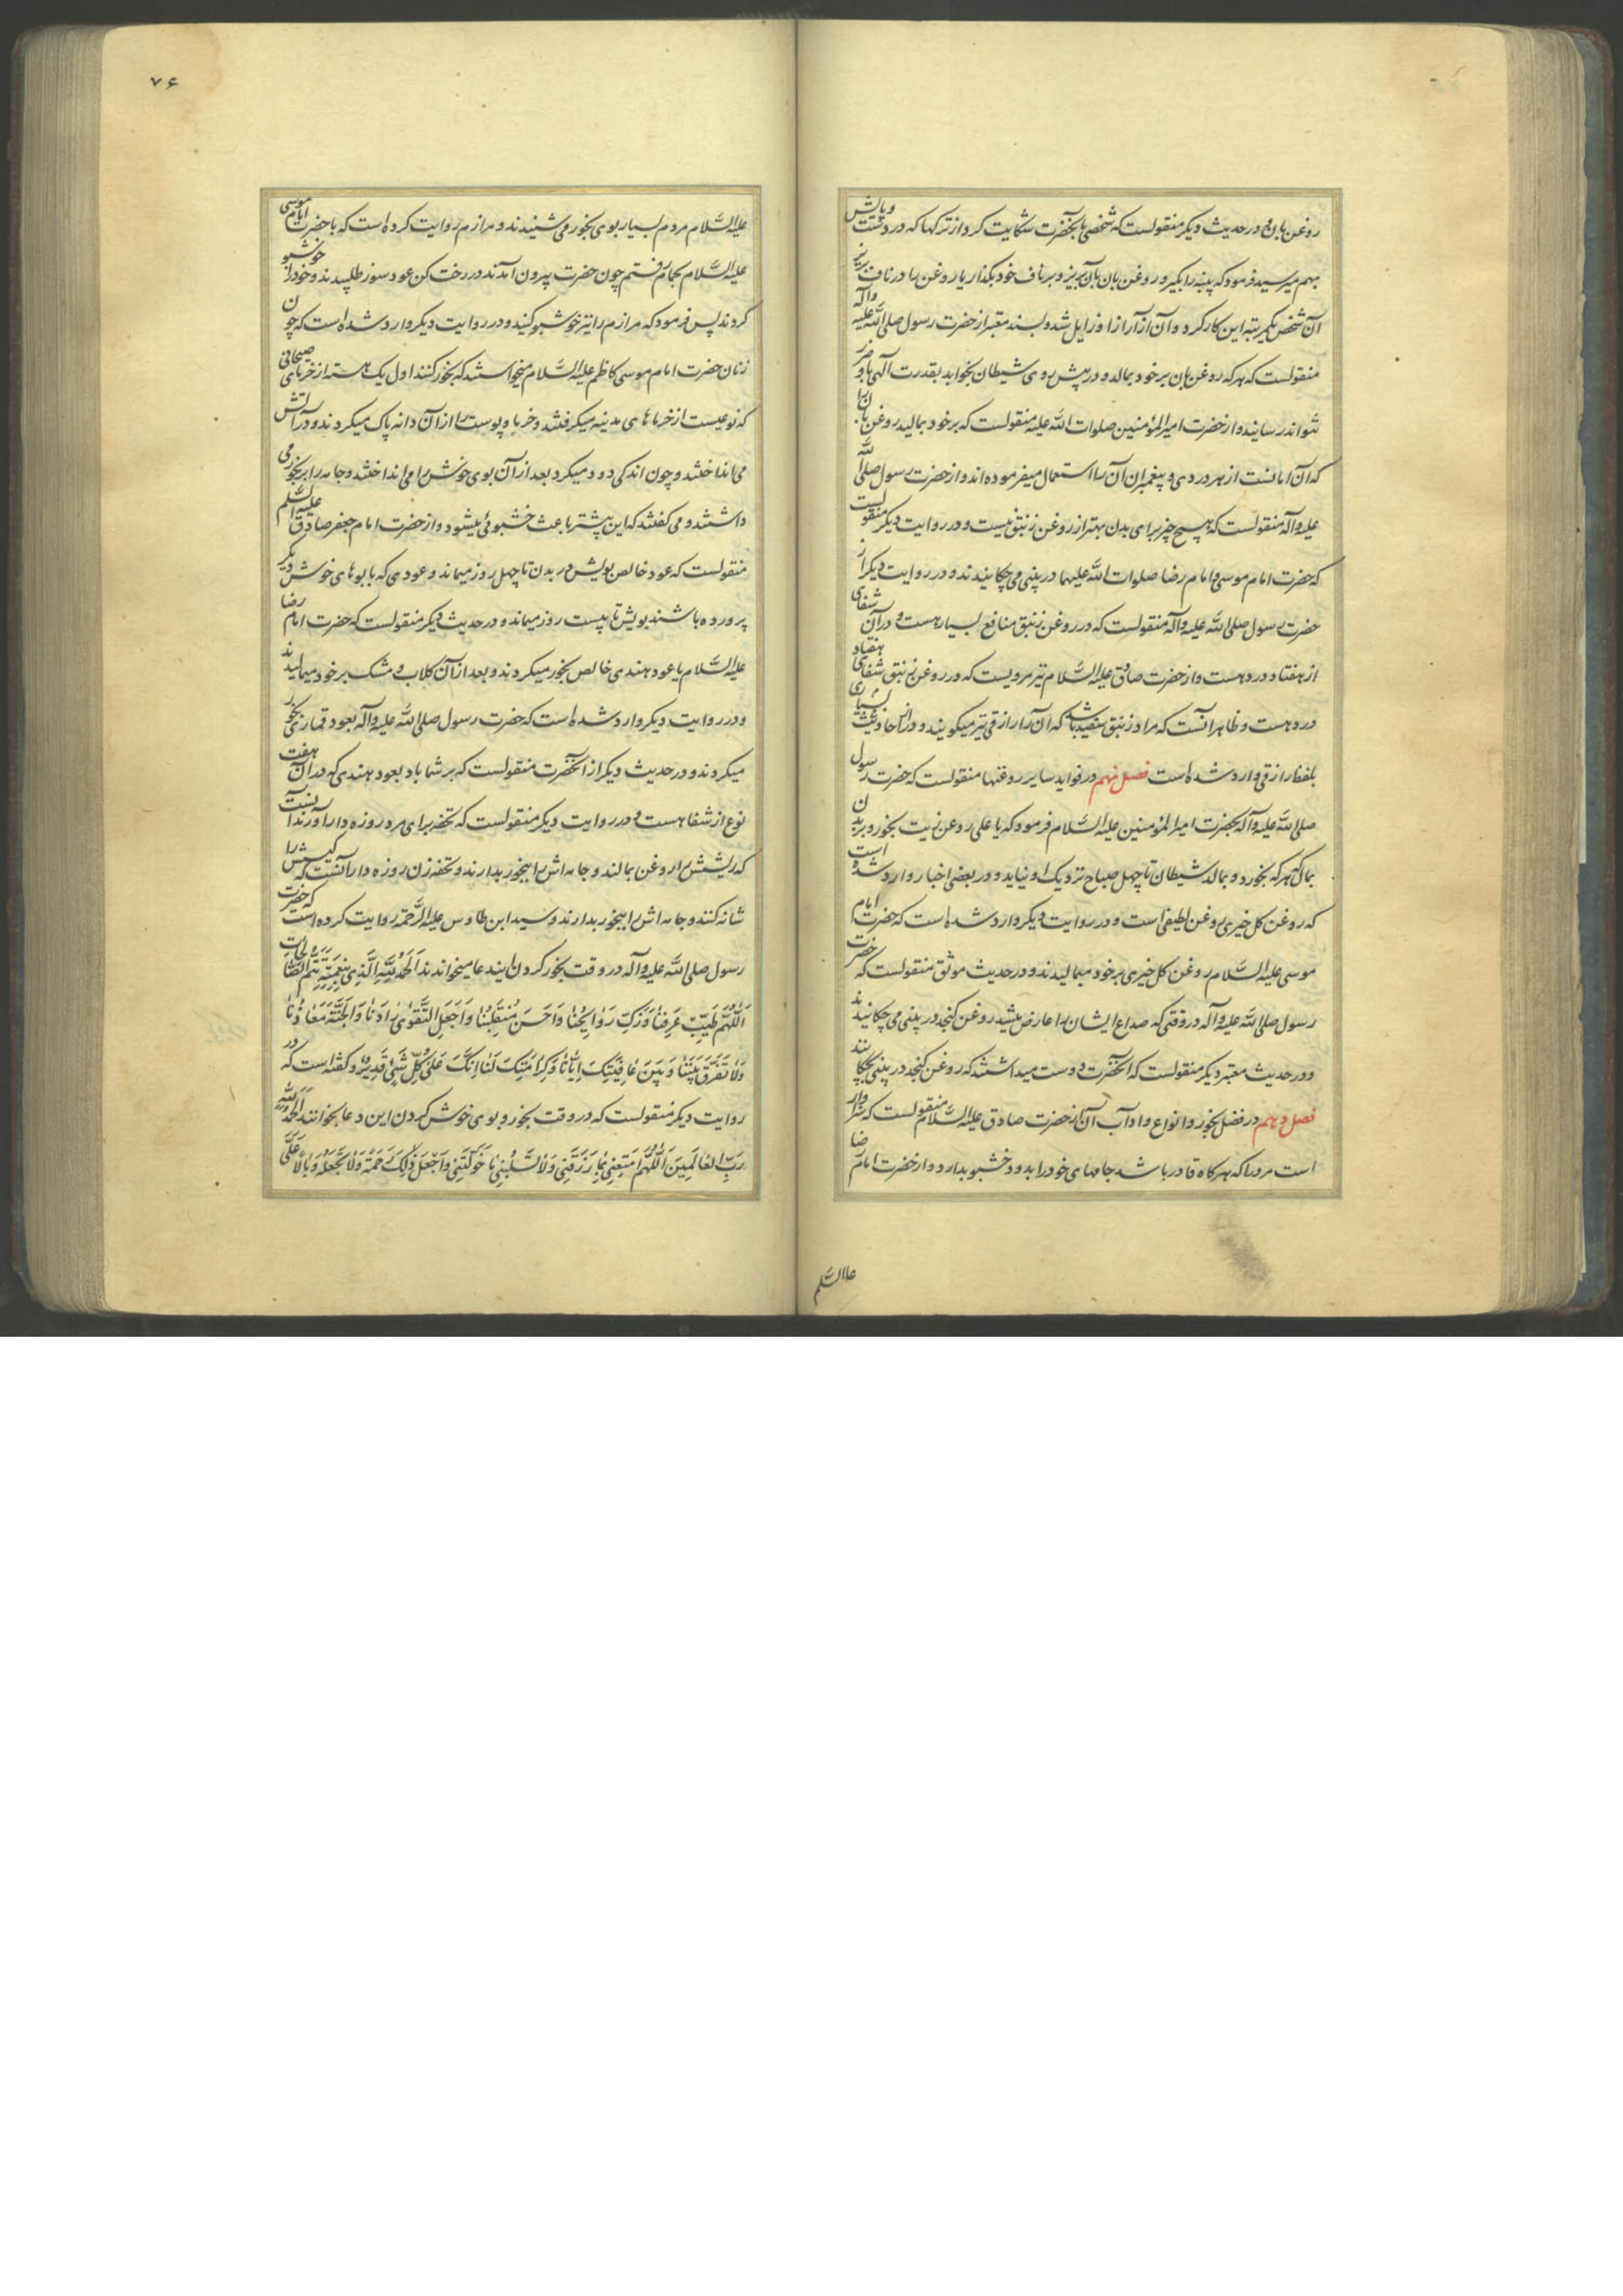 روغن بان و در حدیث دیگر منقولست که شخصی بآنحضرت شکایت کرد از ترکها که در دست و پایش
بهم میرسید فرمود که پنبه را بگیر و روغن بان بآن بریز و بر ناف خود بگذار یا روغن را در ناف بریز
آن شخص یکمرتبه این کار کرد و آن آزار از او زایل شد و بسند معتبر از حضرت رسول صلی الله علیه وآله
منقولست که هر که روغن بان بر خود بمالد و در پیش روی شیطان بخوابد بقدرت الهی باو ضرر
نتواند رسانید و از حضرت امیرالمؤمنین صلوات الله علیه منقولست که بر خود بمالید روغن بان را
که آن امانست از هر دردی و پیغمبران آن را استعمال میفرموده‌اند و از حضرت رسول صلی الله
علیه وآله منقولست که هیچ چیز برای بدن بهتر از روغن زنبق نیست و در روایت دیگر منقولست
که حضرت امام موسی و امام رضا صلوات الله علیهما در بینی می چکانیدند و در روایت دیگر از
حضرت رسول صلی الله علیه وآله منقولست که در روغن زنبق منافع بسیار هست و در آن شفای
از هفتاد درد هست و از حضرت صادق علیه السَّلام نیز مرویست که در روغن زنبق شفای هفتاد
درد هست و ظاهر آنست که مراد زنبق سفید باشد که آن را رازقی نیز میگویند و در احادیث بسیاری
بلفظ رازقی وارد شده است فصل نهم در فواید سایر روغنها منقولست که حضرت رسول
صلی الله علیه وآله بحضرت امیرالمؤمنین علیه السَّلام فرمود که یا علی روغن زیت بخور و بر بدن
بمال که هر که بخورد و بمالد شیطان تا چهل صباح نزدیک او نیاید و در بعضی اخبار وارد شده است
که روغن کل خیری روغن لطیفی است و در روایت دیگر وارد شده است که حضرت امام
موسی علیه السَّلام روغن کل خیری بر خود میمالیدند و در حدیث موثق منقولست که حضرت
رسول صلی الله علیه وآله در وقتی که صداع ایشان را عارض میشد روغن کنجد در بینی می چکانیدند
و در حدیث معتبر دیگر منقولست که آنحضرت دوست میداشتند که روغن کنجد در بینی بچکانند
فصل دهم در فضل بخور و انواع و آداب آن از حضرت صادق علیه السَّلام منقولست که سزاوار
است مرد را که هر کاه قادر باشد جامهای خود را بدود خشبو بدارد و از حضرت امام رضا
علیه السَّلام
۷۶
علیه السَّلام مردم بسیار بوی بخور می شنیدند و مرازم روایت کرده است که با حضرت امام موسی
علیه السَّلام بحمام رفتم چون حضرت بیرون آمدند در رخت کن عود سوز طلبیدند و خود را خوشبو
کردند پس فرمود که مرازم را نیز خوشبو کنید و در روایت دیگر وارد شده است که چون
زنان حضرت امام موسی کاظم علیه السَّلام میخواستند که بخور کنند اول یک هسته از خرمای صیحانی
که نوعیست از خرماهای مدینه میگرفتند و خرما و پوست را از آن دانه پاک میکردند و در آتش
می انداختند و چون اندکی دود میکرد بعد از آن بوی خوش را می انداختند و جامه را ببخور می
داشتند و می گفتند که این بیشتر باعث خشبوئی میشود و از حضرت امام جعفر صادق علیه السلم
منقولست که عود خالص بویش در بدن تا چهل روز میماند و عودی که با بوهای خوش دیگر
پرورده باشند بویش تا بیست روز میماند و در حدیث دیگر منقولست که حضرت امام رضا
علیه السَّلام با عود هندی خالص بخور میکردند و بعد از آن گلاب و مشک بر خود میمالیدند
و در روایت دیگر وارد شده است که حضرت رسول صلی الله علیه وآله بعود قماری بخور
میکردند و در حدیث دیگر از آنحضرت منقولست که بر شما باد بعود هندی که در آن هفت
نوع از شفا هست و در روایت دیگر منقولست که تحفه برای مرد روزه دار آوردند آنست
که ریشش را روغن بمالند و جامه اش را ببخور بدارند و تحفه زن روزه دار آنست که گیسش را
شانه کنند و جامه اش را ببخور بدارند و سید ابن طاوس علیه الرَّحمة روایت کرده است که حضرت
رسول صلی الله علیه وآله در وقت بخور کردن این دعا میخواندند اَلْحَمْدُ لِلّهِ الَّذی بِنِعْمَتِهِ تَتِمُّ الصّالِحات
اَللّهُمَّ طَیِّبْ عَرْفَنا وَ زَکِّ رَوائِحَنا وَ اَحْسِنْ مُنْقَلَبَنا وَ اجْعَلِ التَّقْوی زادَنا وَ الْجَنَّةَ مَعادَنا
وَ لا تُفَرِّقْ بَیْنَنا وَ بَیْنَ عافِیَتِکَ اِیّانا وَ کَرامَتِکَ لَنا اِنَّکَ عَلی کُلِّ شَیْءٍ قَدیرٌ و گفته است که در
روایت دیگر منقولست که در وقت بخور و بوی خوش کردن این دعا بخوانند اَلْحَمْدُ لِلّهِ
رَبِّ الْعالَمینَ اَللّهُمَّ اَمْتِعْنی بِما رَزَقْتَنی وَ لا تَسْلُبْنی ما خَوَّلْتَنی وَ اجْعَلْ ذلِکَ رَحْمَةً وَ لا تَجْعَلْهُ وَبالاً عَلَیَّ